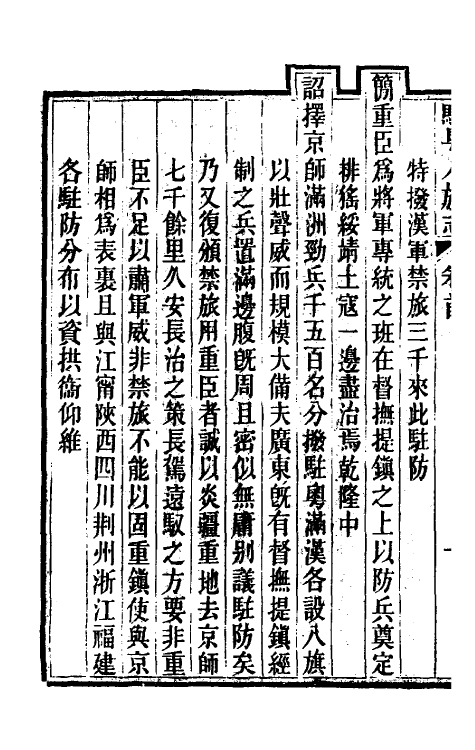 駐粵八旗志 卷首 一
特撥漢軍禁旅三千來此駐防
簡重臣爲將軍專統之班在督撫提鎮之上以防兵奠定
排猺綏靖土寇一邊盡治焉乾隆中
詔擇京師滿洲勁兵千五百名分撥駐粵滿漢各設八旗
以壯聲威而規模大備夫廣東旣有督撫提鎮經
制之兵置滿邊腹旣周且密似無庸别議駐防矣
乃又復頒禁旅用重臣者誠以炎疆重地去京師
七千餘里久安長治之策長駕遠馭之方要非重
臣不足以肅軍威非禁旅不能以固重鎮使與京
師相爲表裏且與江甯陜西四川荆州浙江福建
各駐防分布以資拱衞仰維